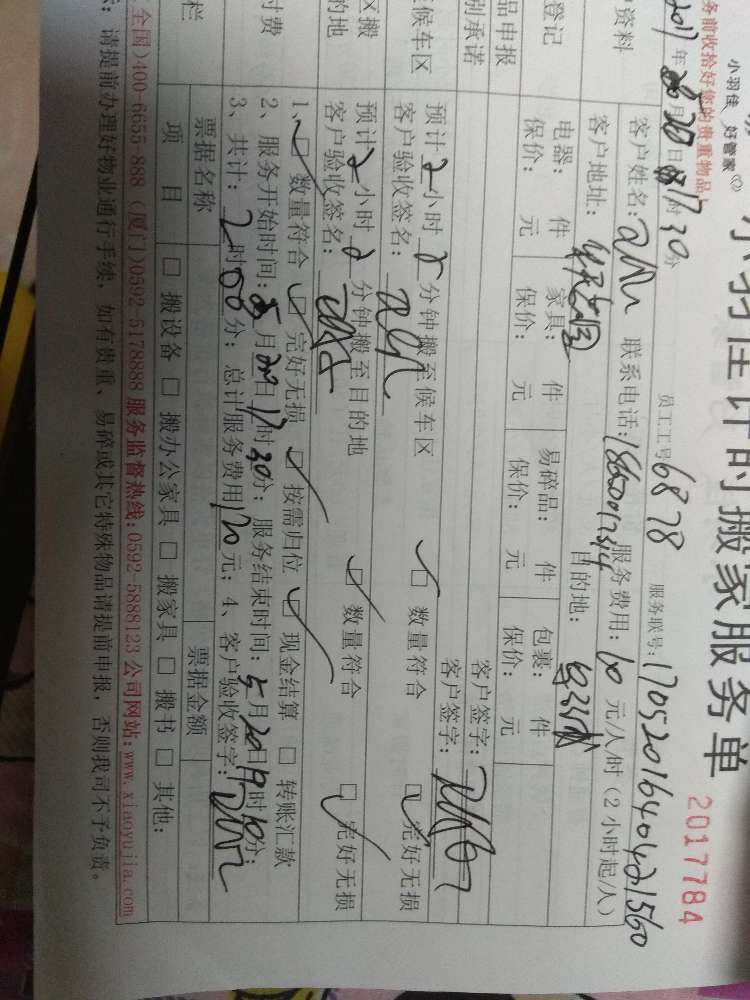 小羽佳 好管家
小羽佳计时搬家服务单
2017784
务前收拾好您的贵重物品
员工工号 6878 服务联号: 1705201640421560
2017年 月20日 17时30分
户资料
客户姓名: 联系电话: 服务费用: 60元/人/时(2小时起/人)
客户地址: 目的地:
登记
电器: 件 家具: 件 易碎品: 件 包裹: 件
保价: 元 保价: 元 保价: 元 保价: 元
品申报
客户签字:
别承诺
客户签字:
候车区
预计2小时0分钟搬至候车区 ☑数量符合 ☑完好无损
客户验收签名:
区搬
的地
预计2小时0分钟搬至目的地 ☑数量符合 ☑完好无损
客户验收签名:
付费
1、☑数量符合 ☑完好无损 ☑按需归位 ☑现金结算 □转账汇款
2、服务开始时间:5月20日17时30分; 服务结束时间:5月20日19时 分;
3、共计:2时00分; 总计服务费用120元; 4、客户验收签字:
栏
票据名称 票据金额
项目 □搬设备 □搬办公家具 □搬家具 □搬书 □其他:
全国)400-6655-888 (厦门)0592-5178888 服务监督热线:0592-5888123 公司网站:www.xiaoyujia.com
: 请提前办理好物业通行手续,如有贵重、易碎或其它特殊物品请提前申报,否则我司不予负责。